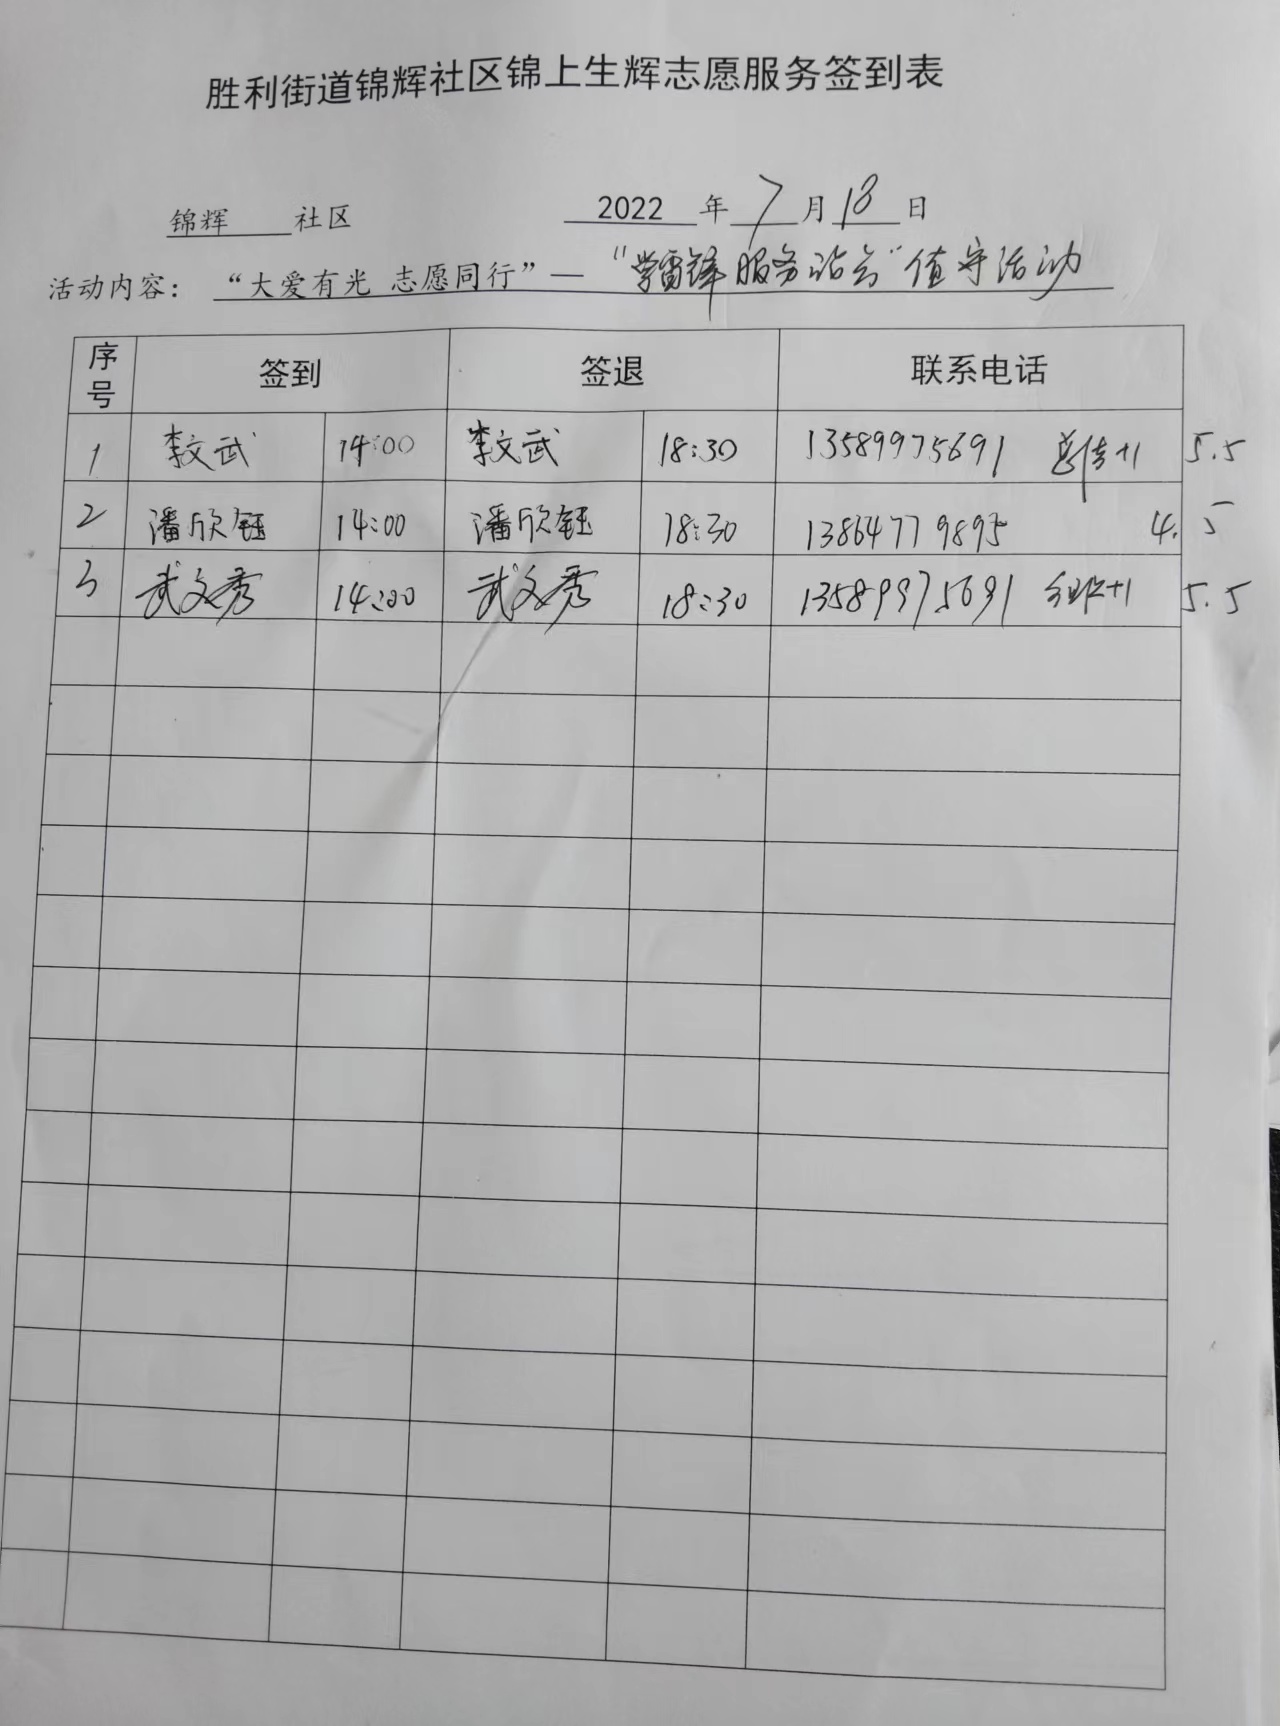 胜利街道锦辉社区锦上生辉志愿服务签到表
锦辉 社区 2022 年 7 月 18 日
活动内容：“大爱有光 志愿同行”—“学雷锋服务站台”值守活动
序号 签到 签退 联系电话
1 李文武 14:00 李文武 18:30 13589975691 +1 5.5
2 潘欣钰 14:00 潘欣钰 18:30 13864779895 4.5
3 武文秀 14:00 武文秀 18:30 13589975691 组织+1 5.5